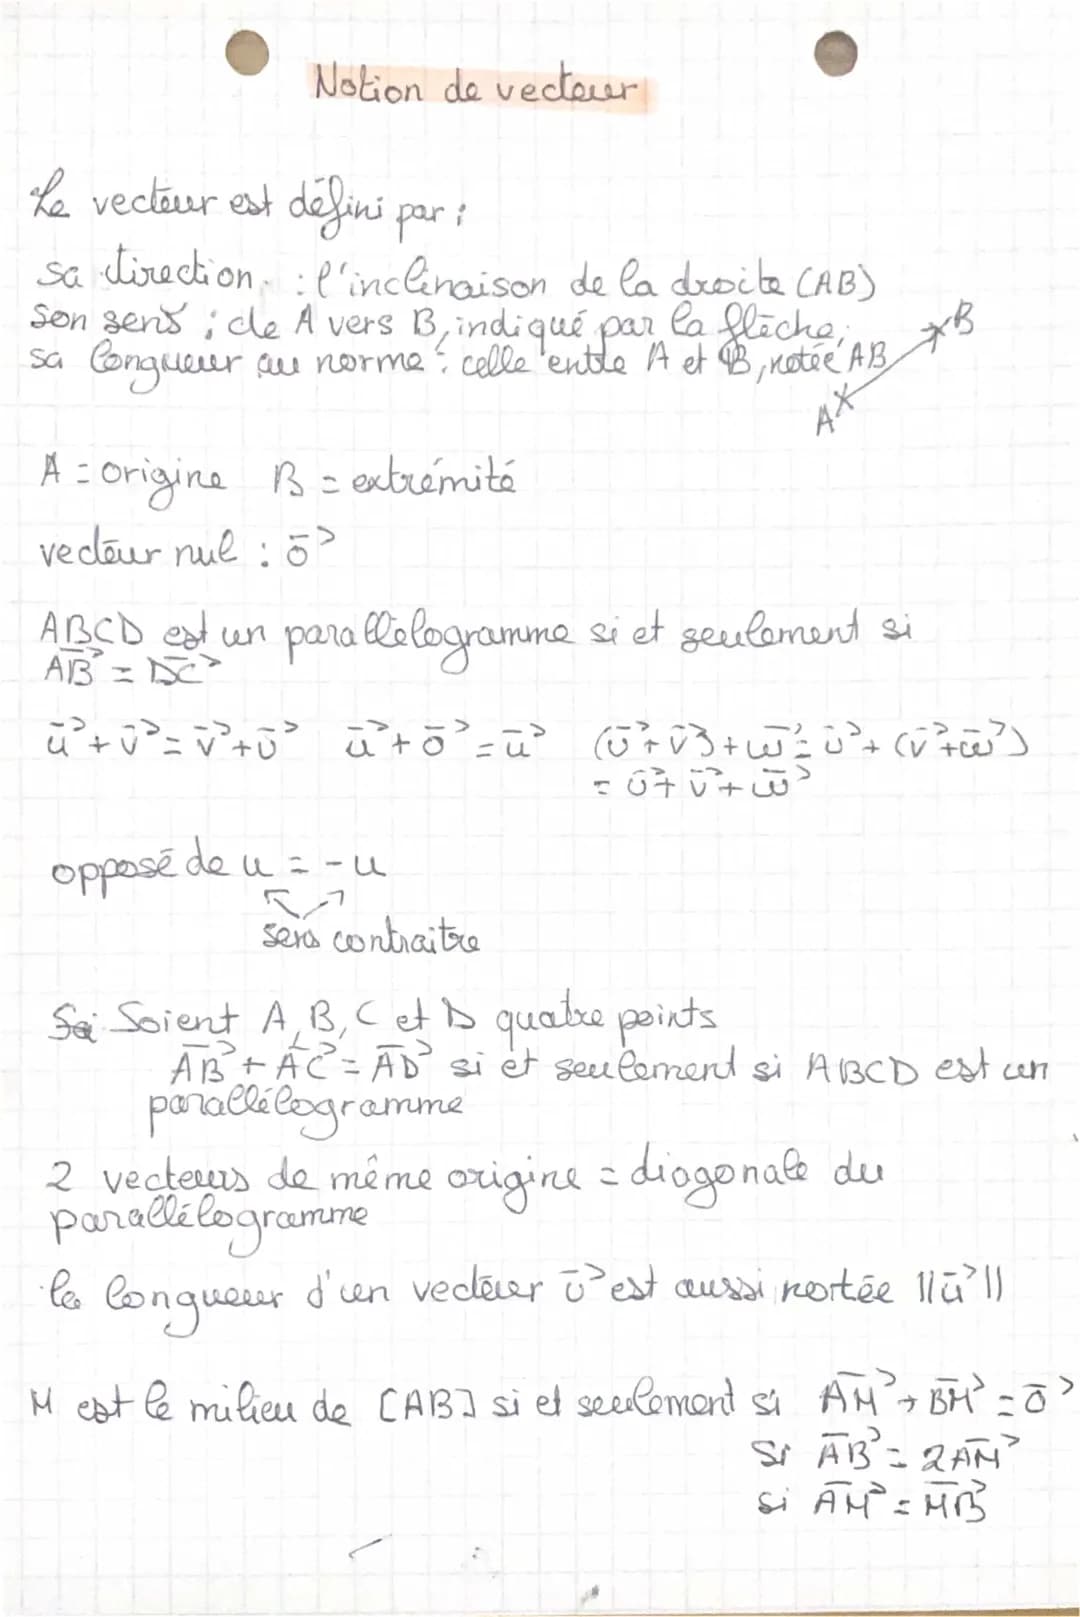 Notion de vecteur
Le vecteur est défini par :
sa direction : l'inclinaison de la droite (AB)
son sens : de A vers B, indiqué par la flèche,
sa longueur ou norme : celle entre A et B, notée AB
B
A
A = origine B = extrémité
vecteur nul : 0⃗
ABCD est un parallélogramme si et seulement si
AB⃗ = DC⃗
u⃗ + v⃗ = v⃗ + u⃗ u⃗ + 0⃗ = u⃗ (u⃗ + v⃗) + w⃗ = u⃗ + (v⃗ + w⃗)
= u⃗ + v⃗ + w⃗
opposé de u = -u
sens contraitre
Soient A, B, C et D quatre points
AB⃗ + AC⃗ = AD⃗ si et seulement si ABCD est un
parallélogramme
2 vecteurs de même origine = diagonale du
parallélogramme
la longueur d'un vecteur u⃗ est aussi nortée ||u⃗||
M est le milieu de [AB] si et seulement si AM⃗ + BM⃗ = 0⃗
si AB⃗ = 2AM⃗
si AM⃗ = MB⃗